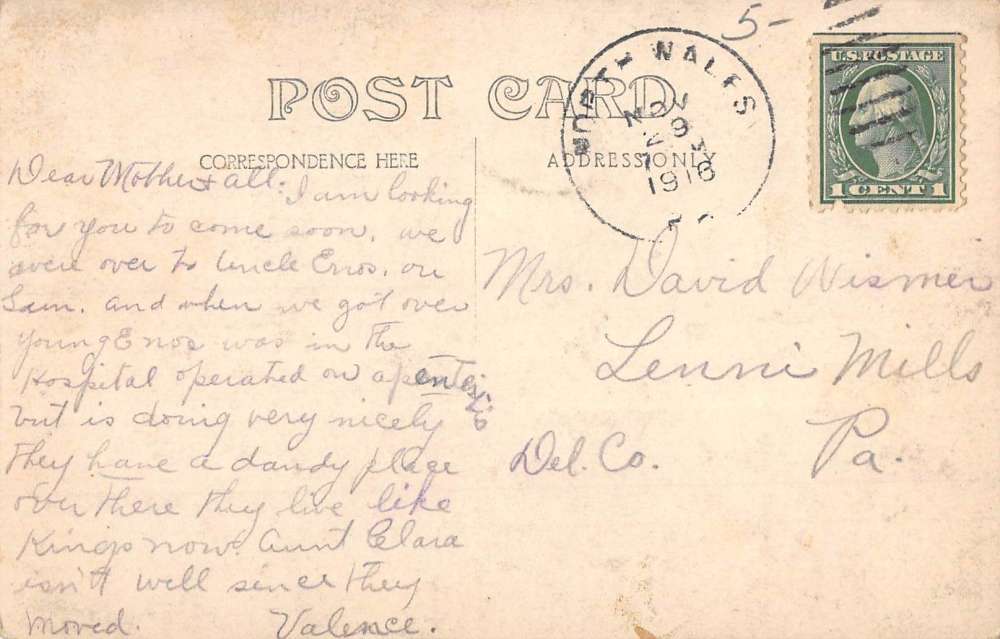 5-
POST CARD
CORRESPONDENCE HERE
ADDRESS ONLY
NORTH WALES
NOV
29
1916
U.S. POSTAGE
1 CENT 1
Dear Mother & all. I am looking
for you to come soon. we
were over to Uncle Enos. on
Sun. and when we got over
young Enos was in the
Hospital operated on apentisis
but is doing very nicely
They have a dandy place
over there they live like
Kings now. Aunt Clara
isn't well since they
moved. Valence.
Mrs. David Wismer
Lenni Mills
Del. Co. Pa.